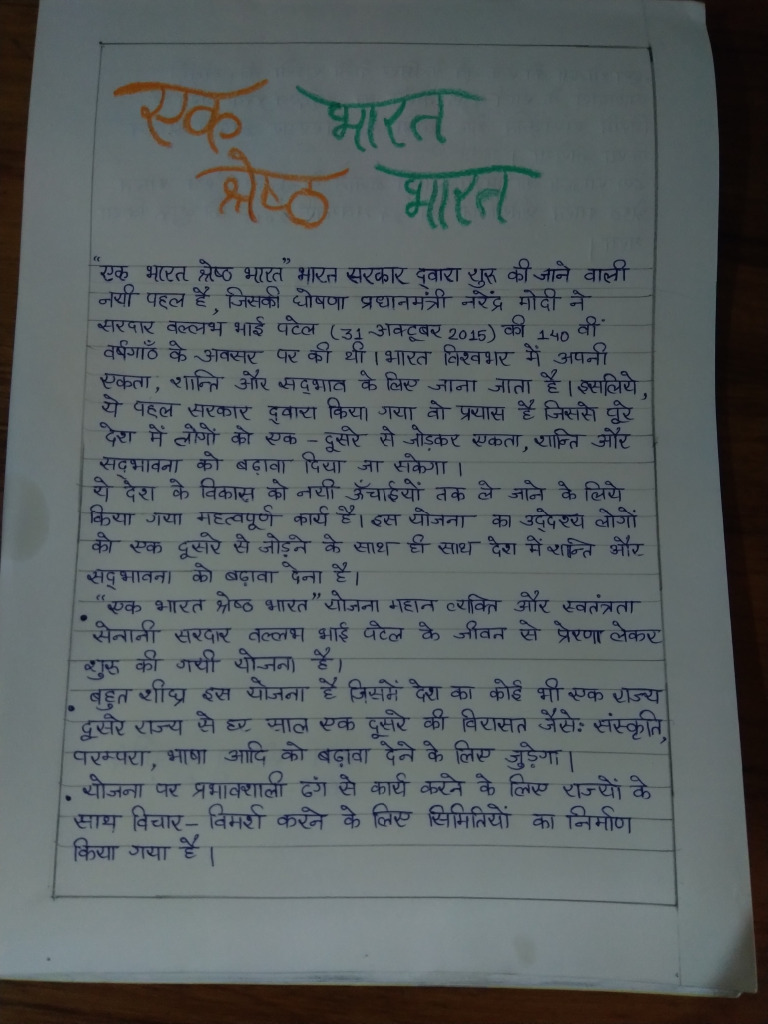 एक भारत
श्रेष्ठ भारत
"एक भारत श्रेष्ठ भारत" भारत सरकार द्वारा शुरू की जाने वाली
नयी पहल है, जिसकी घोषणा प्रधानमंत्री नरेंद्र मोदी ने
सरदार वल्लभ भाई पटेल (31 अक्टूबर 2015) की 140 वीं
वर्षगाँठ के अवसर पर की थी। भारत विश्वभर में अपनी
एकता, शान्ति और सद्भाव के लिए जाना जाता है। इसलिये,
ये पहल सरकार द्वारा किया गया वो प्रयास है जिससे पूरे
देश में लोगों को एक - दूसरे से जोड़कर एकता, शान्ति और
सद्भावना को बढ़ावा दिया जा सकेगा।
ये देश के विकास को नयी ऊँचाईयों तक ले जाने के लिये
किया गया महत्वपूर्ण कार्य है। इस योजना का उद्देश्य लोगों
को एक दूसरे से जोड़ने के साथ ही साथ देश में शान्ति और
सद्भावना को बढ़ावा देना है।
• "एक भारत श्रेष्ठ भारत" योजना महान व्यक्ति और स्वतंत्रता
सेनानी सरदार वल्लभ भाई पटेल के जीवन से प्रेरणा लेकर
शुरू की गयी योजना है।
• बहुत शीघ्र इस योजना है जिसमें देश का कोई भी एक राज्य
दूसरे राज्य से हर साल एक दूसरे की विरासत जैसे: संस्कृति,
परम्परा, भाषा आदि को बढ़ावा देने के लिए जुड़ेगा।
• योजना पर प्रभावशाली ढंग से कार्य करने के लिए राज्यों के
साथ विचार - विमर्श करने के लिए सिमितियों का निर्माण
किया गया है।